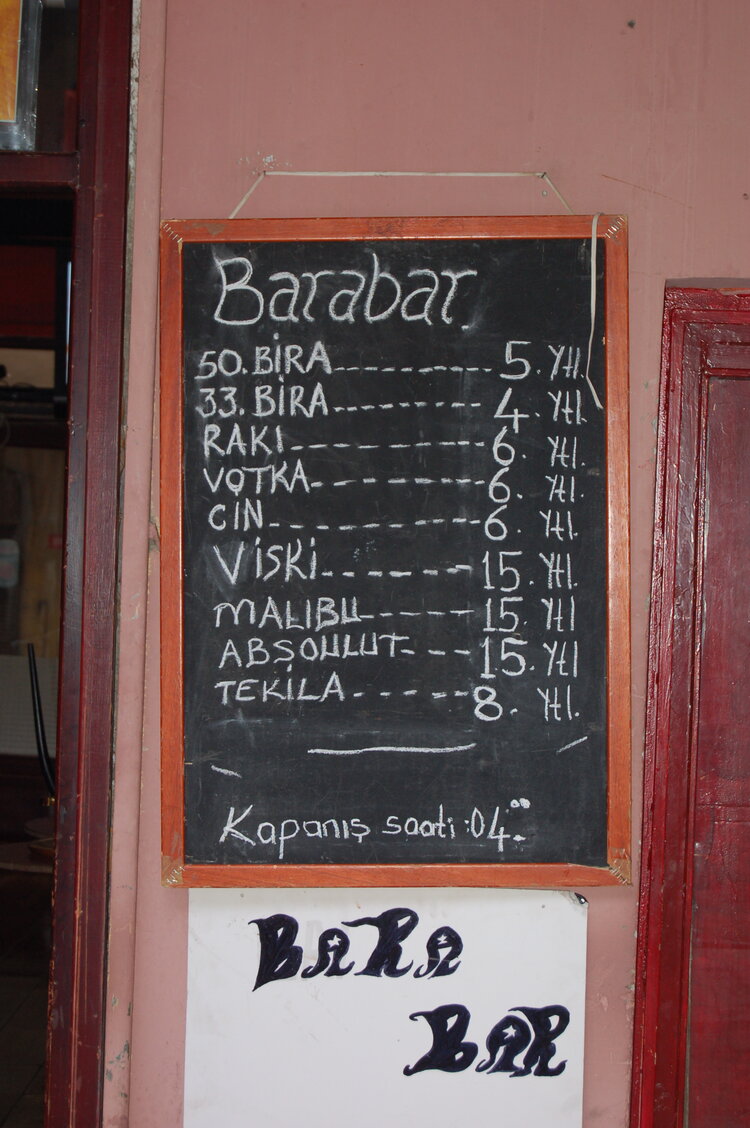 Barabar
50.BİRA----------- 5. Ytl.
33.BİRA---------- 4. Ytl.
RAKI------------- 6. Ytl.
VOTKA---------- 6. Ytl.
CİN------------- 6. Ytl.
VİSKİ-------- 15. Ytl.
MALIBU------ 15. Ytl
ABSOULUT---- 15. Ytl
TEKİLA------- 8. Ytl.
Kapanış saati :04.00
BARA
BAR